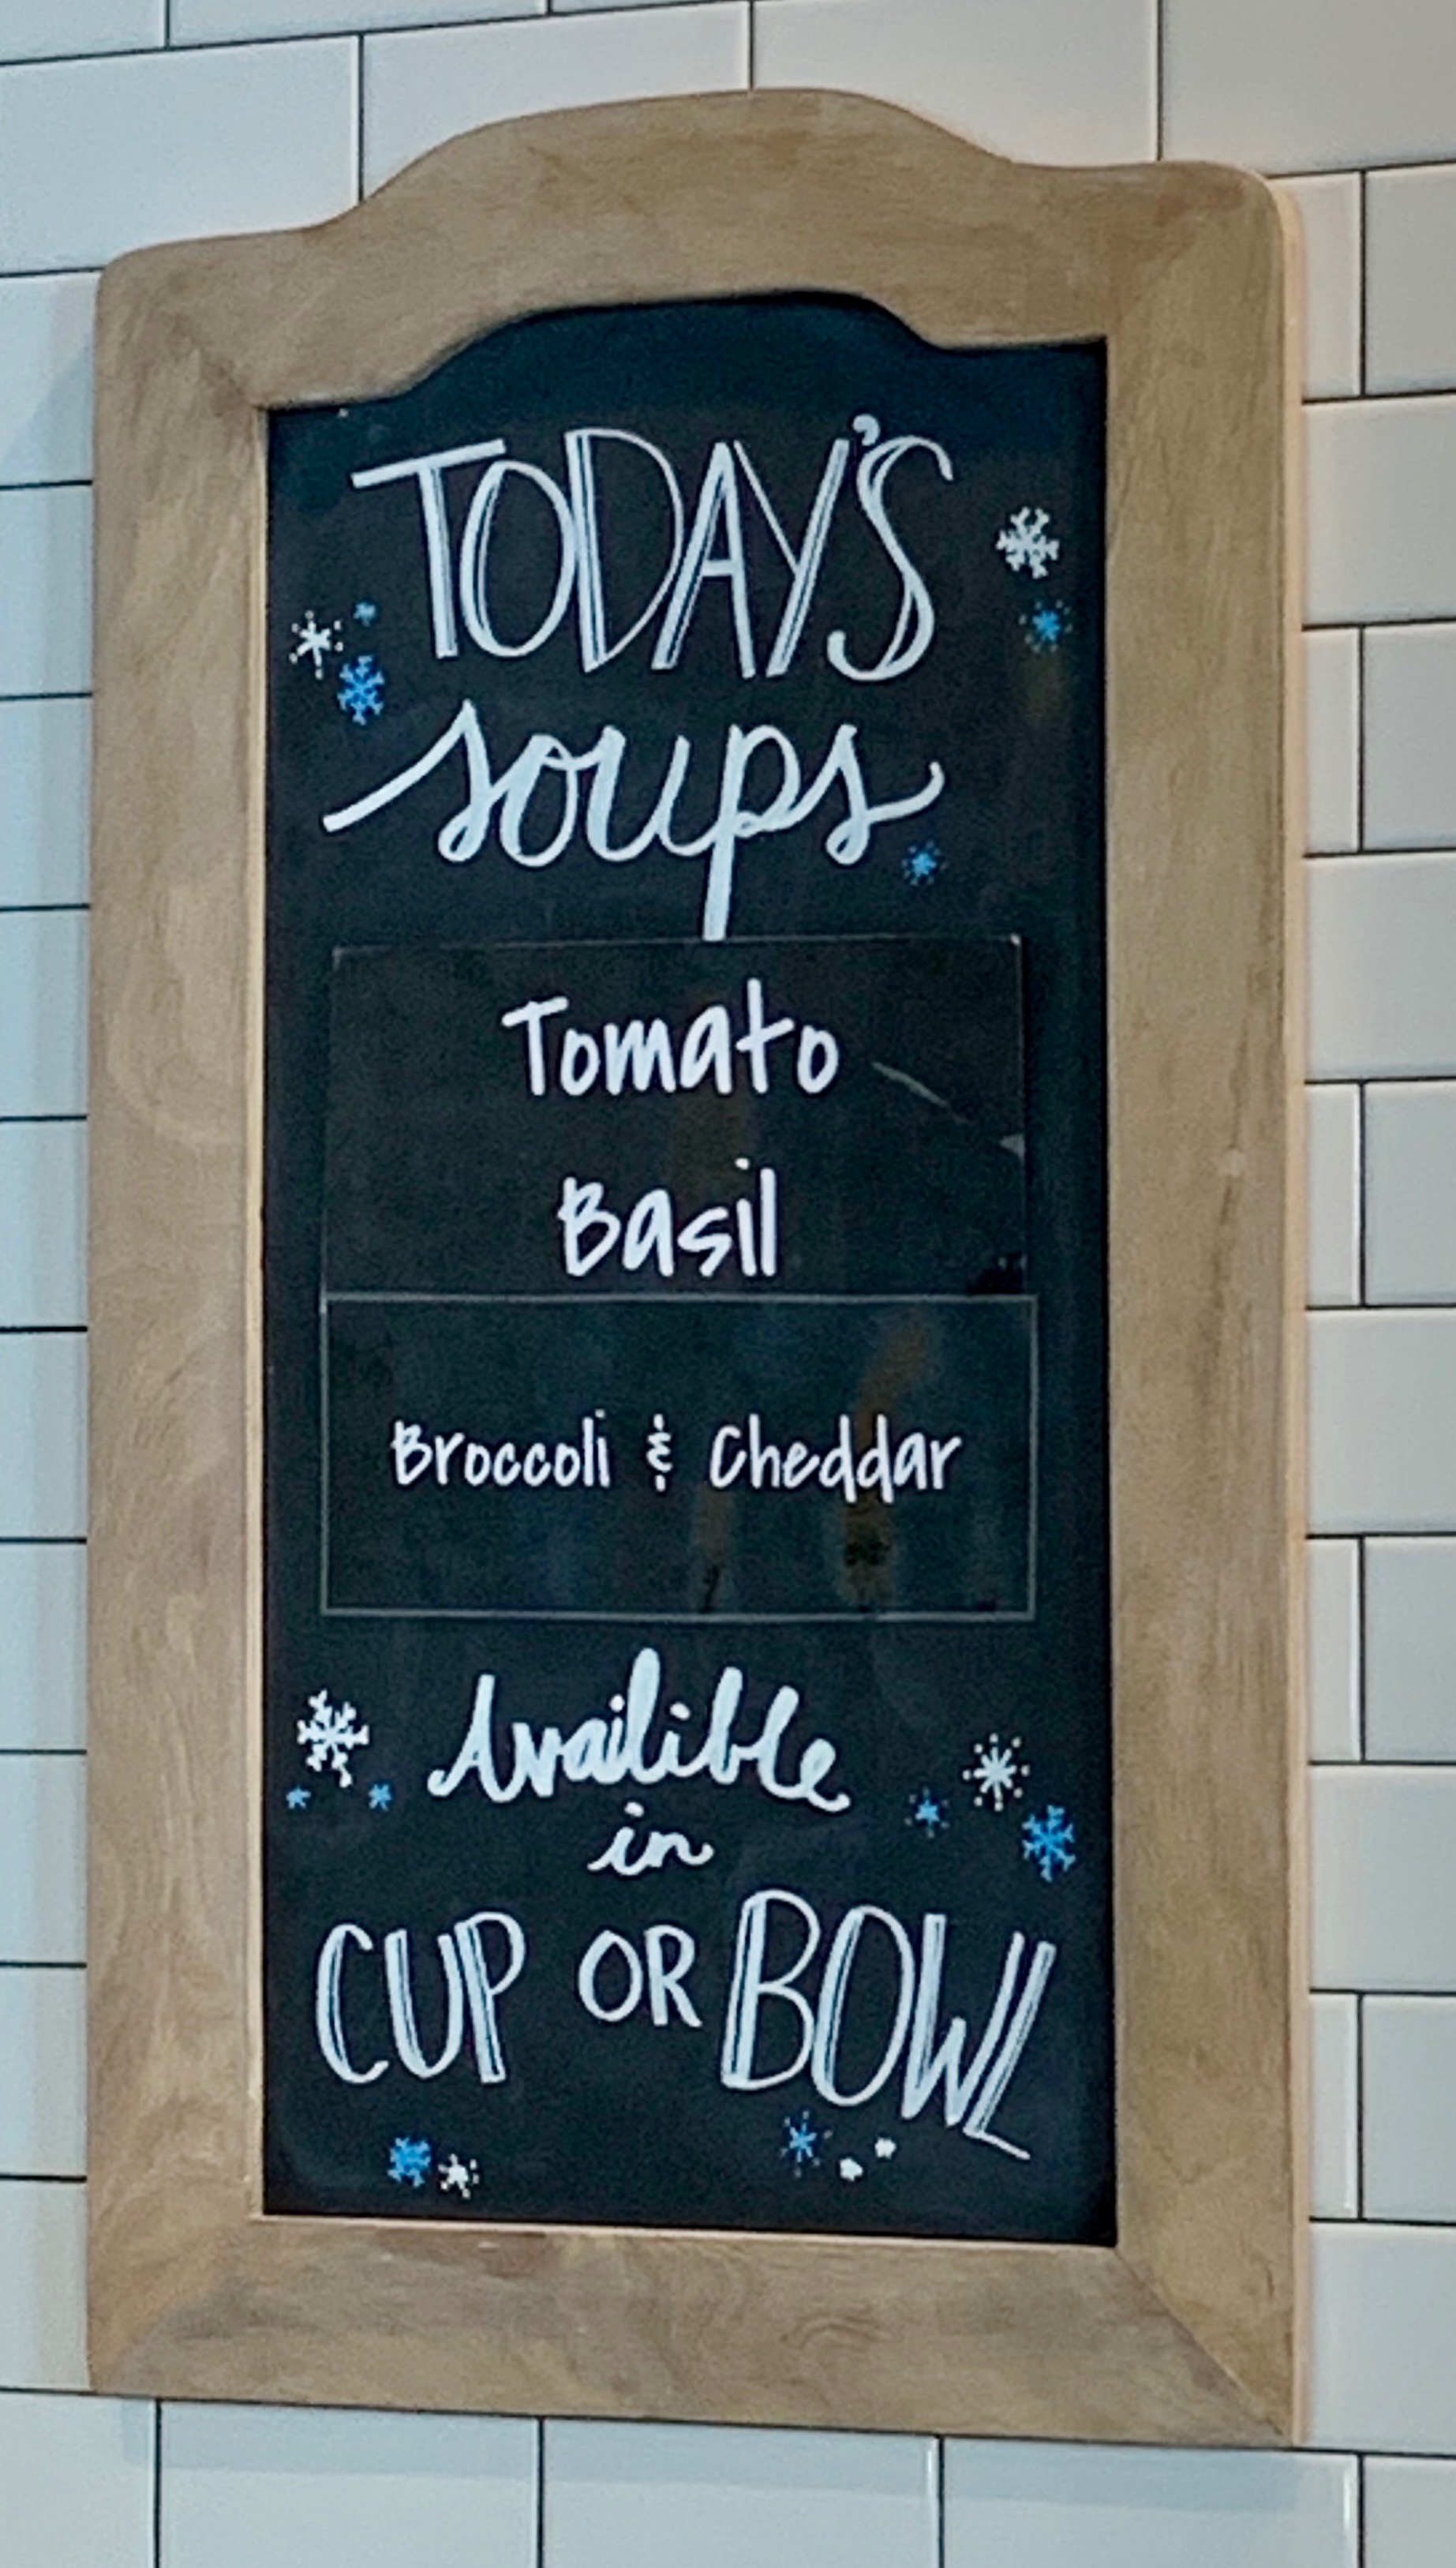 TODAY'S
soups
Tomato
Basil
Broccoli & Cheddar
Availible
in
CUP OR BOWL